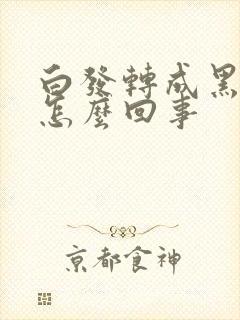 白發轉成黑
怎麼回事
京都食神